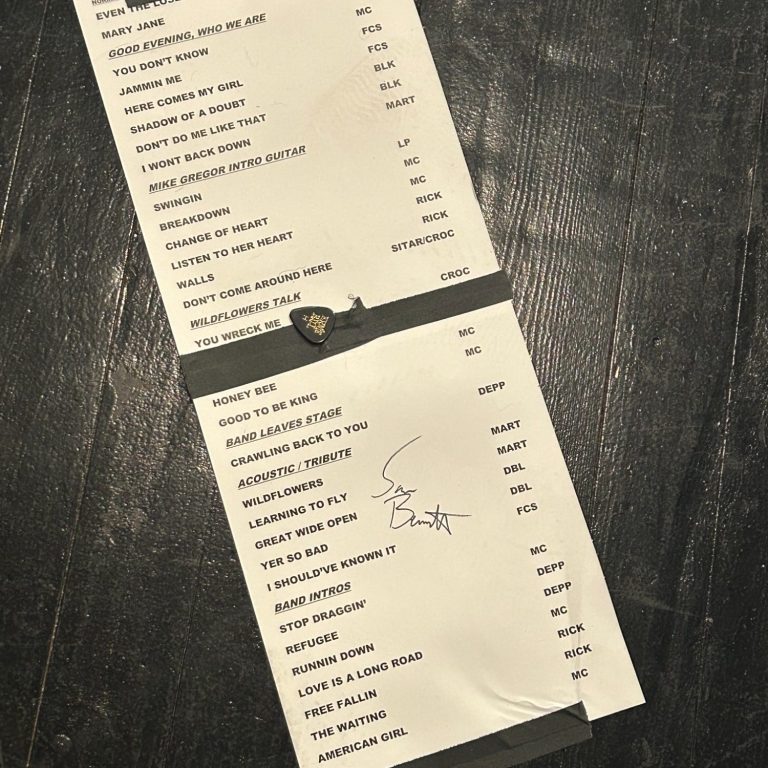 EVEN THE LOSE
MARY JANE
GOOD EVENING, WHO WE ARE
YOU DON'T KNOW MC
JAMMIN ME FCS
HERE COMES MY GIRL FCS
SHADOW OF A DOUBT BLK
DON'T DO ME LIKE THAT BLK
I WONT BACK DOWN MART
MIKE GREGOR INTRO GUITAR
SWINGIN LP
BREAKDOWN MC
CHANGE OF HEART MC
LISTEN TO HER HEART RICK
WALLS RICK
DON'T COME AROUND HERE SITAR/CROC
WILDFLOWERS TALK
YOU WRECK ME CROC
HONEY BEE MC
GOOD TO BE KING MC
BAND LEAVES STAGE
CRAWLING BACK TO YOU DEPP
ACOUSTIC / TRIBUTE
WILDFLOWERS MART
LEARNING TO FLY MART
GREAT WIDE OPEN DBL
YER SO BAD DBL
I SHOULD'VE KNOWN IT FCS
BAND INTROS
STOP DRAGGIN' MC
REFUGEE DEPP
RUNNIN DOWN DEPP
LOVE IS A LONG ROAD MC
FREE FALLIN RICK
THE WAITING RICK
AMERICAN GIRL MC